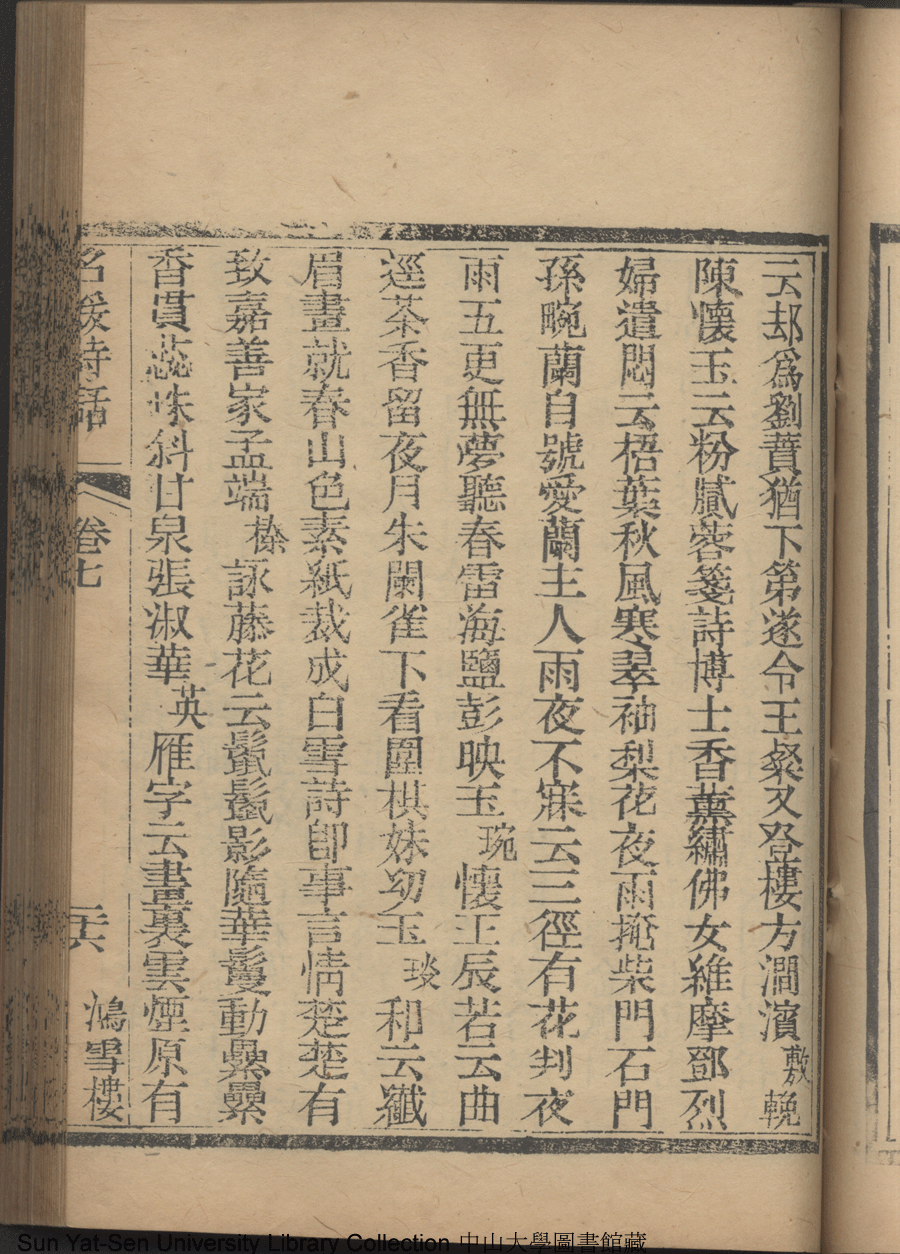 云却爲劉蕡猶下第遂令王粲又登樓方澗濱敷輓
陳懷玉云粉膩蓉箋詩博士香薰繡佛女維摩鄧烈
婦遣悶云梧葉秋風寒翠袖梨花夜雨掩柴門石門
孫畹蘭自號愛蘭主人雨夜不寐云三徑有花判夜
雨五更無夢聽春雷海鹽彭映玉琬懷王辰若云曲
逕茶香留夜月朱闌雀下看圍棋妹幼玉琰和云纖
眉畫就春山色素紙裁成白雪詩卽事言情楚楚有
致嘉善家孟端㯽詠藤花云鬣鬣影隨華鬘動纍纍
香貫蕊珠斜甘泉張淑華英雁字云畫裏雲煙原有
名媛詩話 卷七 二六 鴻雪樓
Sun Yat-Sen University Library Collection 中山大學圖書館藏